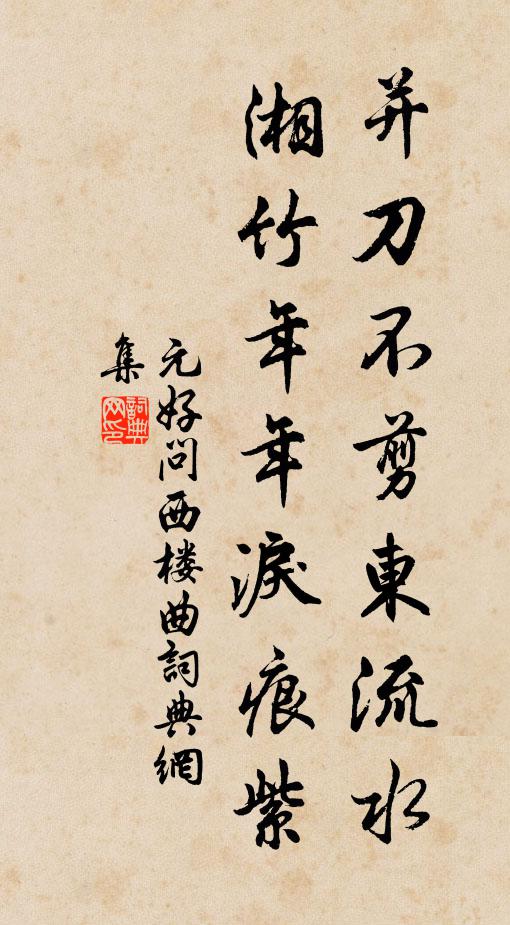 并刀不剪東流水
湘竹年年淚痕紫
元好问西楼曲詞典網
集
詞典
网印